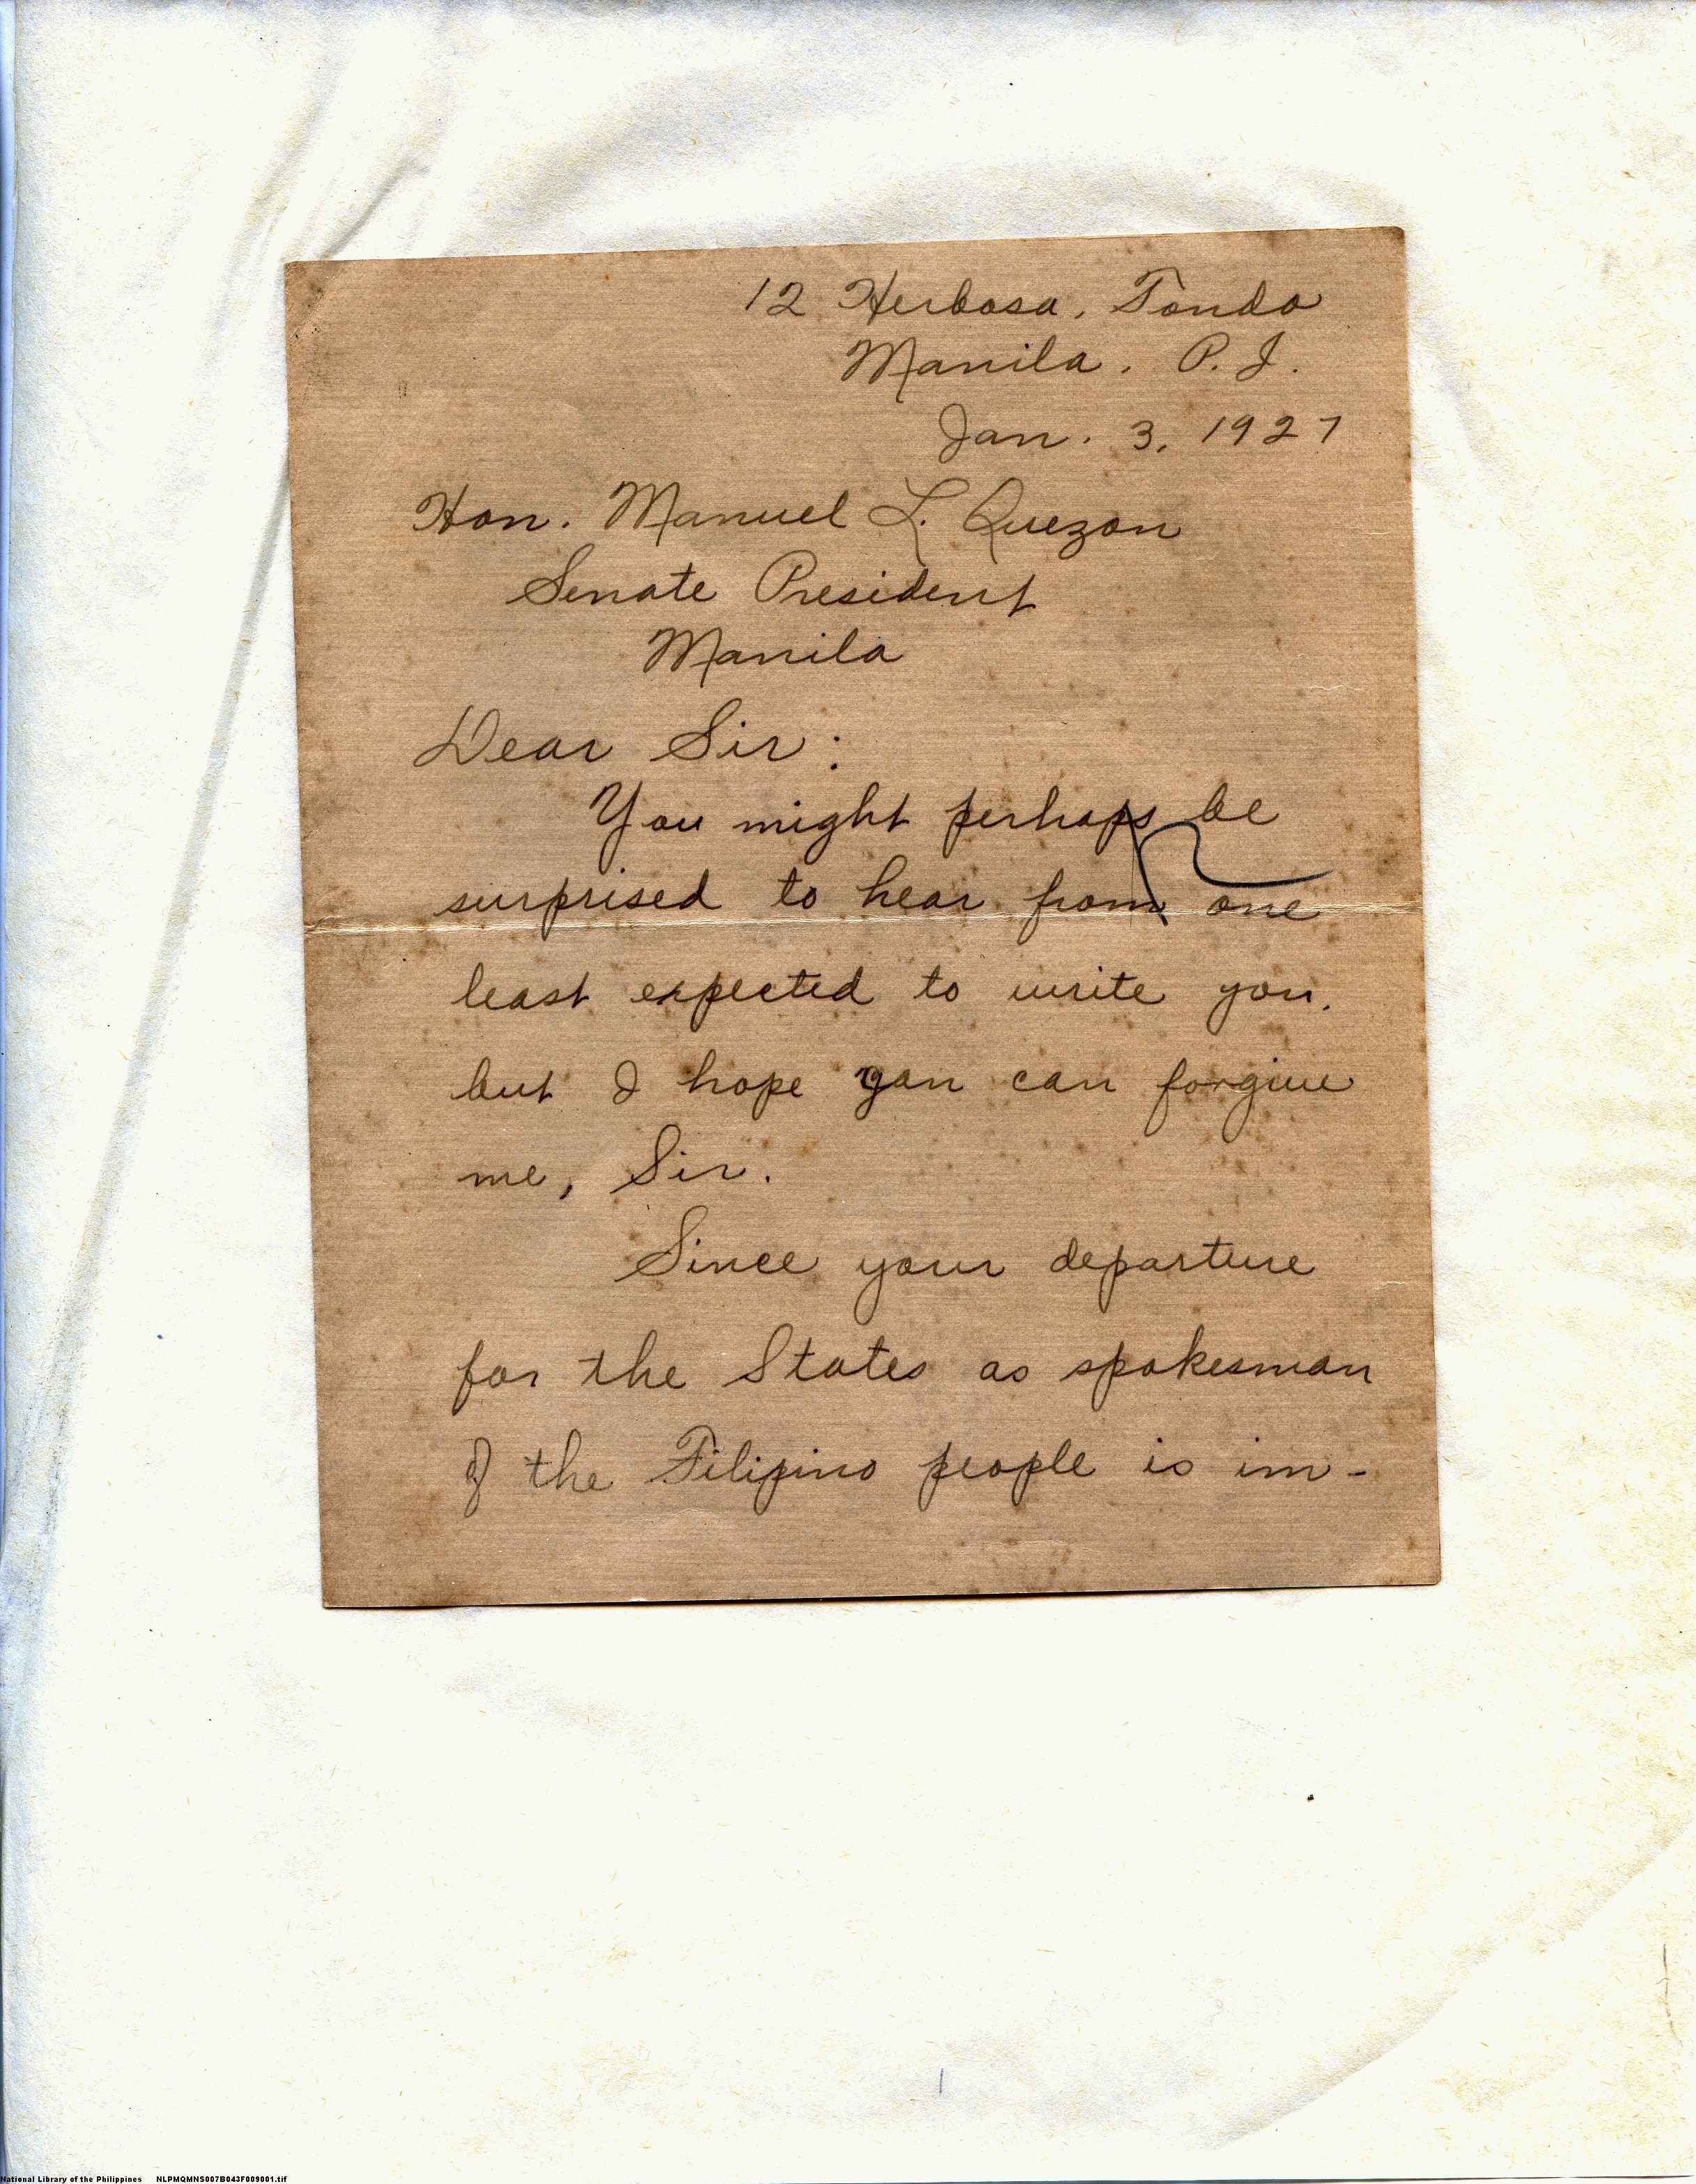 12 Herbosa, Tondo
Manila, P.I.
Jan. 3, 1927
Hon. Manuel L. Quezon
Senate President
Manila
Dear Sir:
You might perhaps be
surprised to hear from one
least expected to write you,
but I hope you can forgive
me, Sir.
Since your departure
for the States as spokesman
of the Filipino people is im-
National Library of the Philippines NLPMQMNS007B043F009001.tif